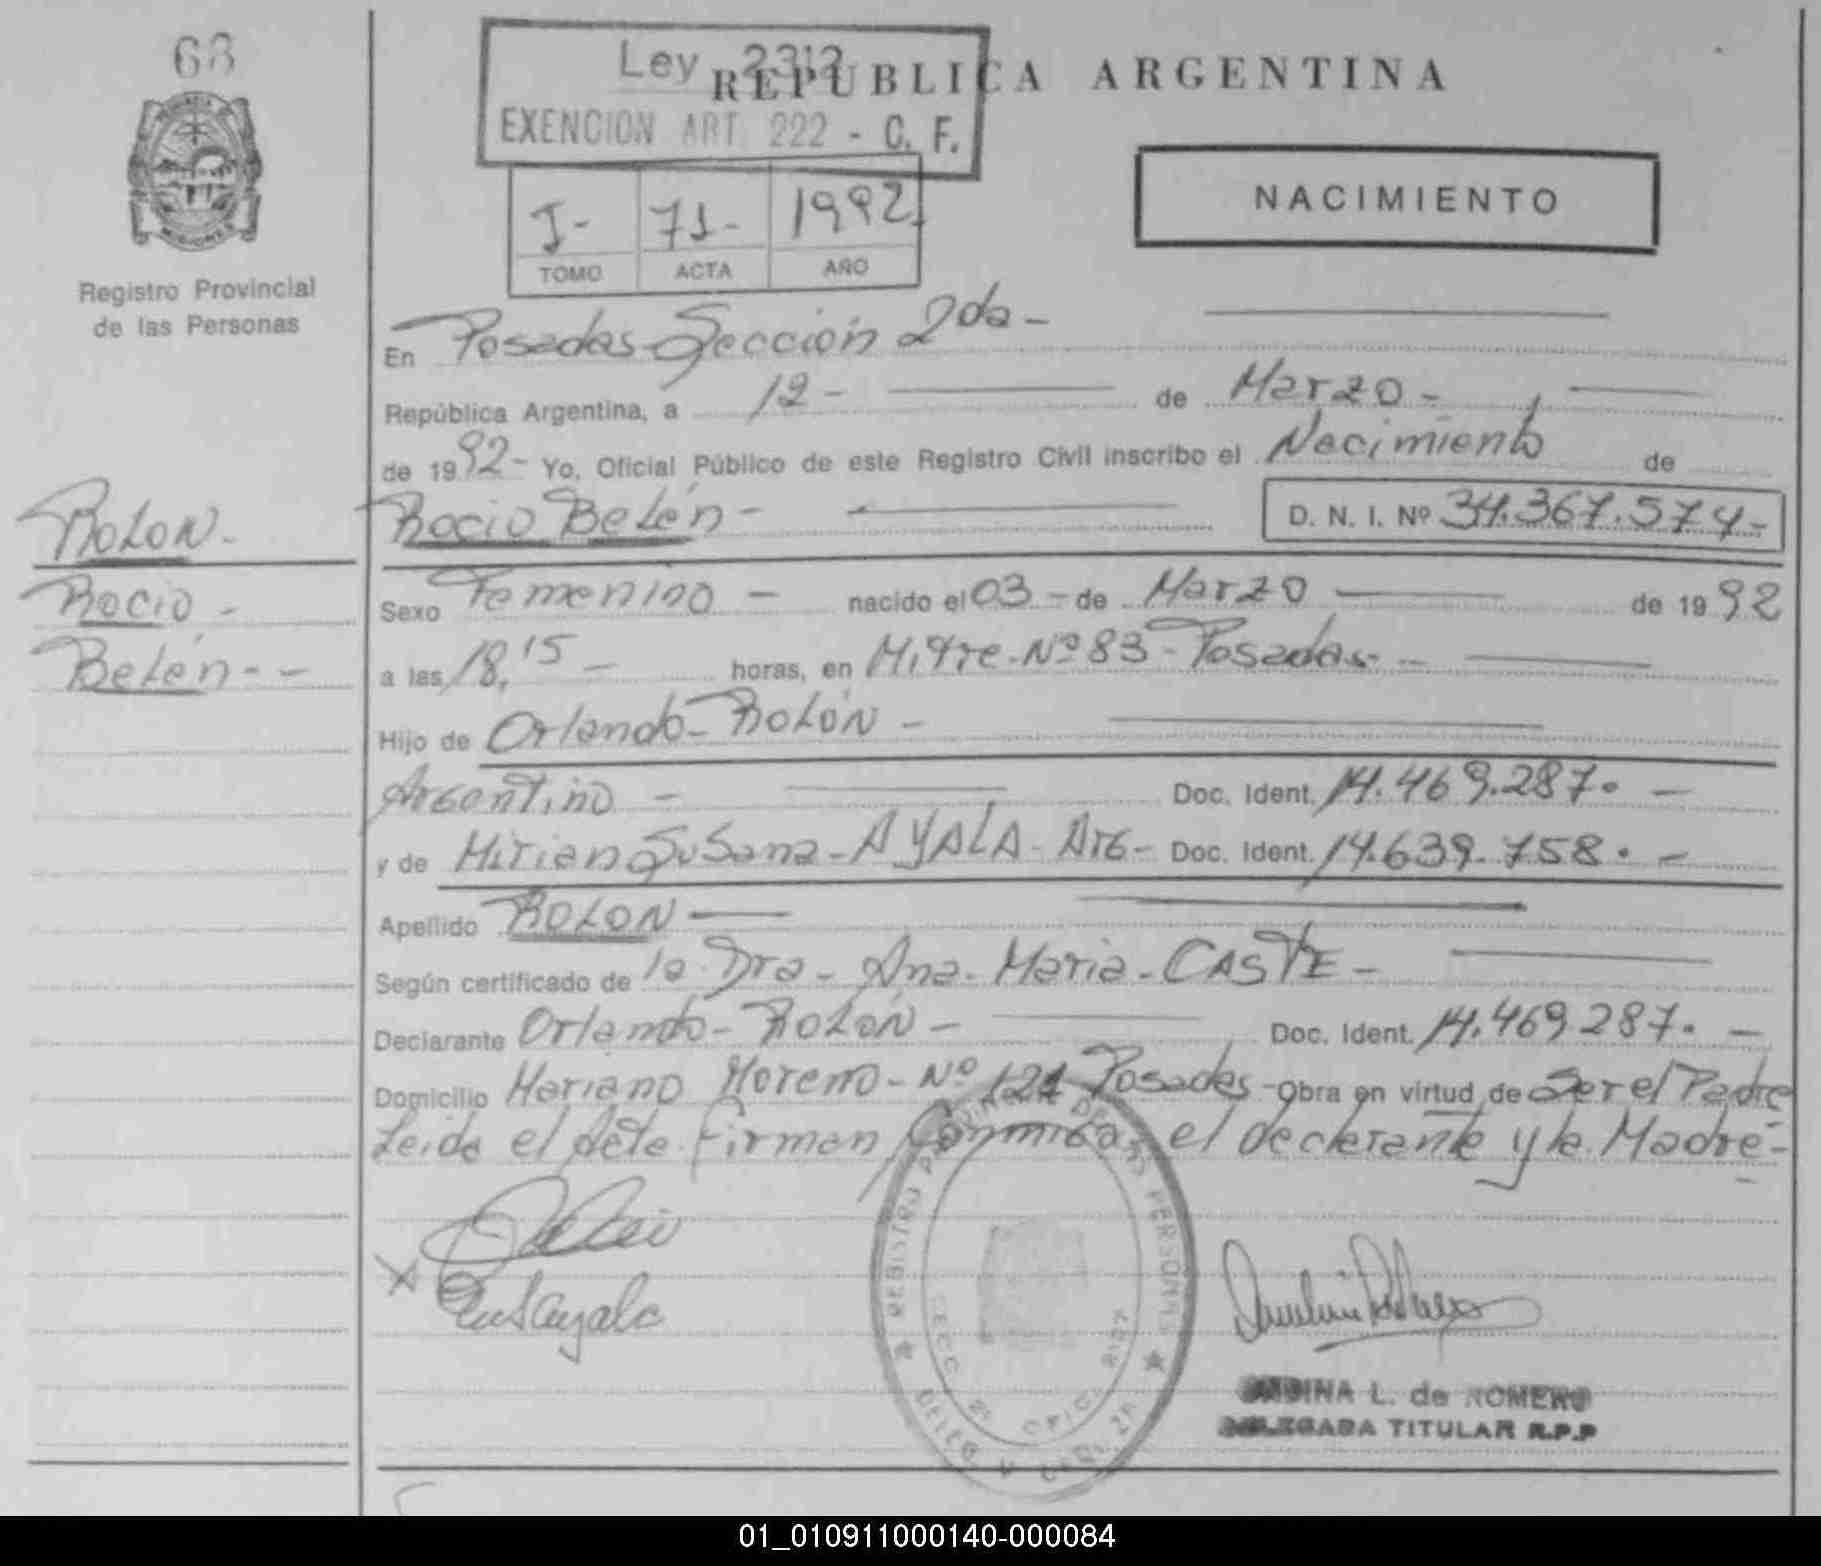 68
Ley 2312
REPUBLICA ARGENTINA
EXENCION ART. 222 - C. F.
NACIMIENTO
I- 71- 1992
TOMO ACTA AÑO
Registro Provincial
de las Personas
En Posadas-Sección 2da-
República Argentina, a 12- de Marzo-
de 1992- Yo, Oficial Público de este Registro Civil inscribo el Nacimiento de
ROLON- Rocio Belén- D. N. I. Nº 34.367.574-
Rocio- Sexo Femenino - nacido el 03 - de Marzo de 1992
Belén-- a las 18,15 - horas, en Mitre-Nº 83-Posadas-
Hijo de Orlando-ROLÓN -
Argentino - Doc. Ident. 14.469.287.-
y de Mirian Susana-AYALA-Arg- Doc. Ident. 14.639.758.-
Apellido ROLON
Según certificado de la Dra-Ana-Maria-CASTE-
Declarante Orlando-ROLÓN- Doc. Ident. 14.469.287.-
Domicilio Mariano Moreno-Nº 121 Posadas-Obra en virtud de Ser el Padre
Leida el Acta firman Conmigo, el declarante y la Madre-
REGISTRO PROVINCIAL DE LAS PERSONAS
L. de ROMERO
DELEGADA TITULAR R.P.P
01_010911000140-000084